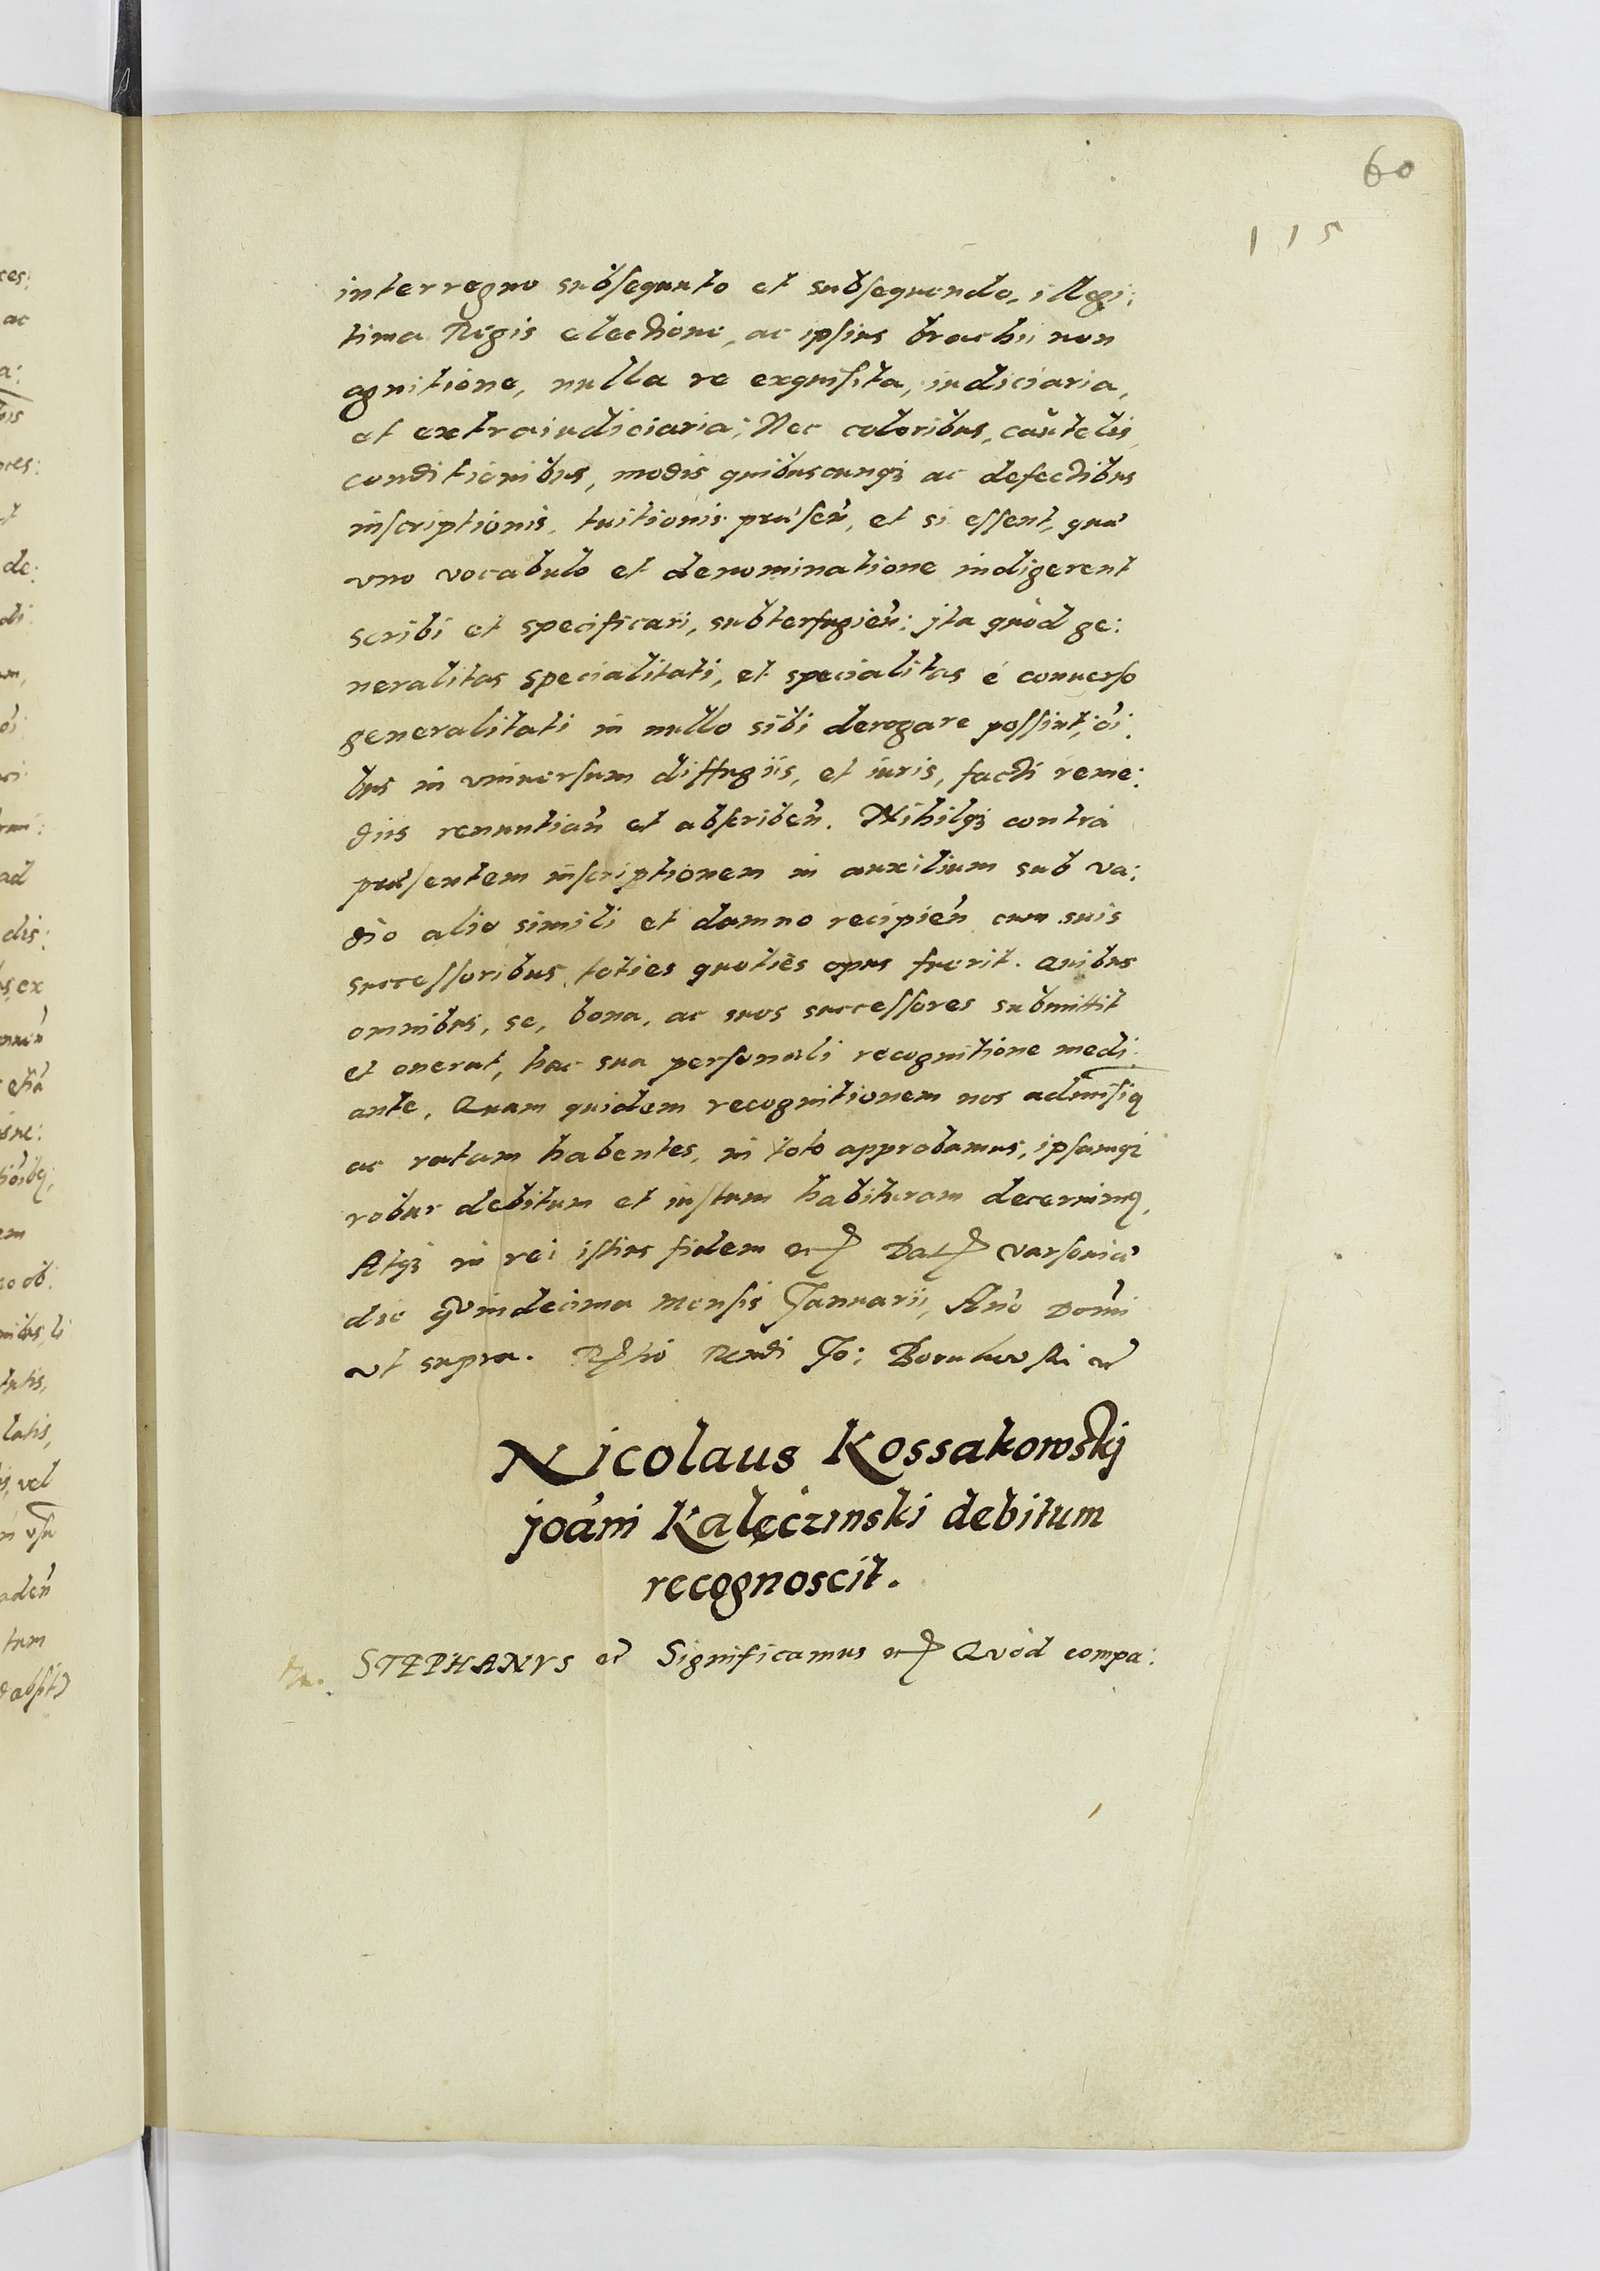 60
115
interregno subsequuto et subsequendo, illegi:
tima Regis electione, ac ipsius brachii non
agnitione, nulla re exquisita, iudiciaria,
et extraiudiciaria; Nec coloribus, cautelis,
conditionibus, modis quibuscunqꝫ ac defectibus
inscriptionis, tuitionis præsen̄, et si essent, quæ
vno vocabulo et denominatione indigerent
scribi et specificari, subterfugien̄: jta quòd ge:
neralitas specialitati, et specialitas é conuerso
generalitati in nullo sibi derogare possint, oi:
bus in vniuersum diffugiis, et iuris, facti reme:
diis renuntian̄ et abscriben̄. Nihilqꝫ contrà
præsentem inscriptionem in auxilium sub va:
dio alio simili et damno recipien̄ cum suis
successoribus, toties quotiès opus fuerit. Quibus
omnibus, se, bona, ac suos successores submittit
et onerat, hac sua personali recognitione medi:
ante. Quam quidem recognitionem nos admisiq
ac ratam habentes, in toto approbamus, ipsamqꝫ
robur debitum et iustum habituram decernimꝯ,
Atqꝫ in rei istius fidem etc Datꝭ Varsouiæ
die quindecima mensis Januarii, Año Domi
vt supra. Rndi Jo: Borukowski etc
Nicolaus Kossakowskij
joáni Kalęczinski debitum
recognoscit.
STEPHANVS etc Significamus etc Quòd compa: